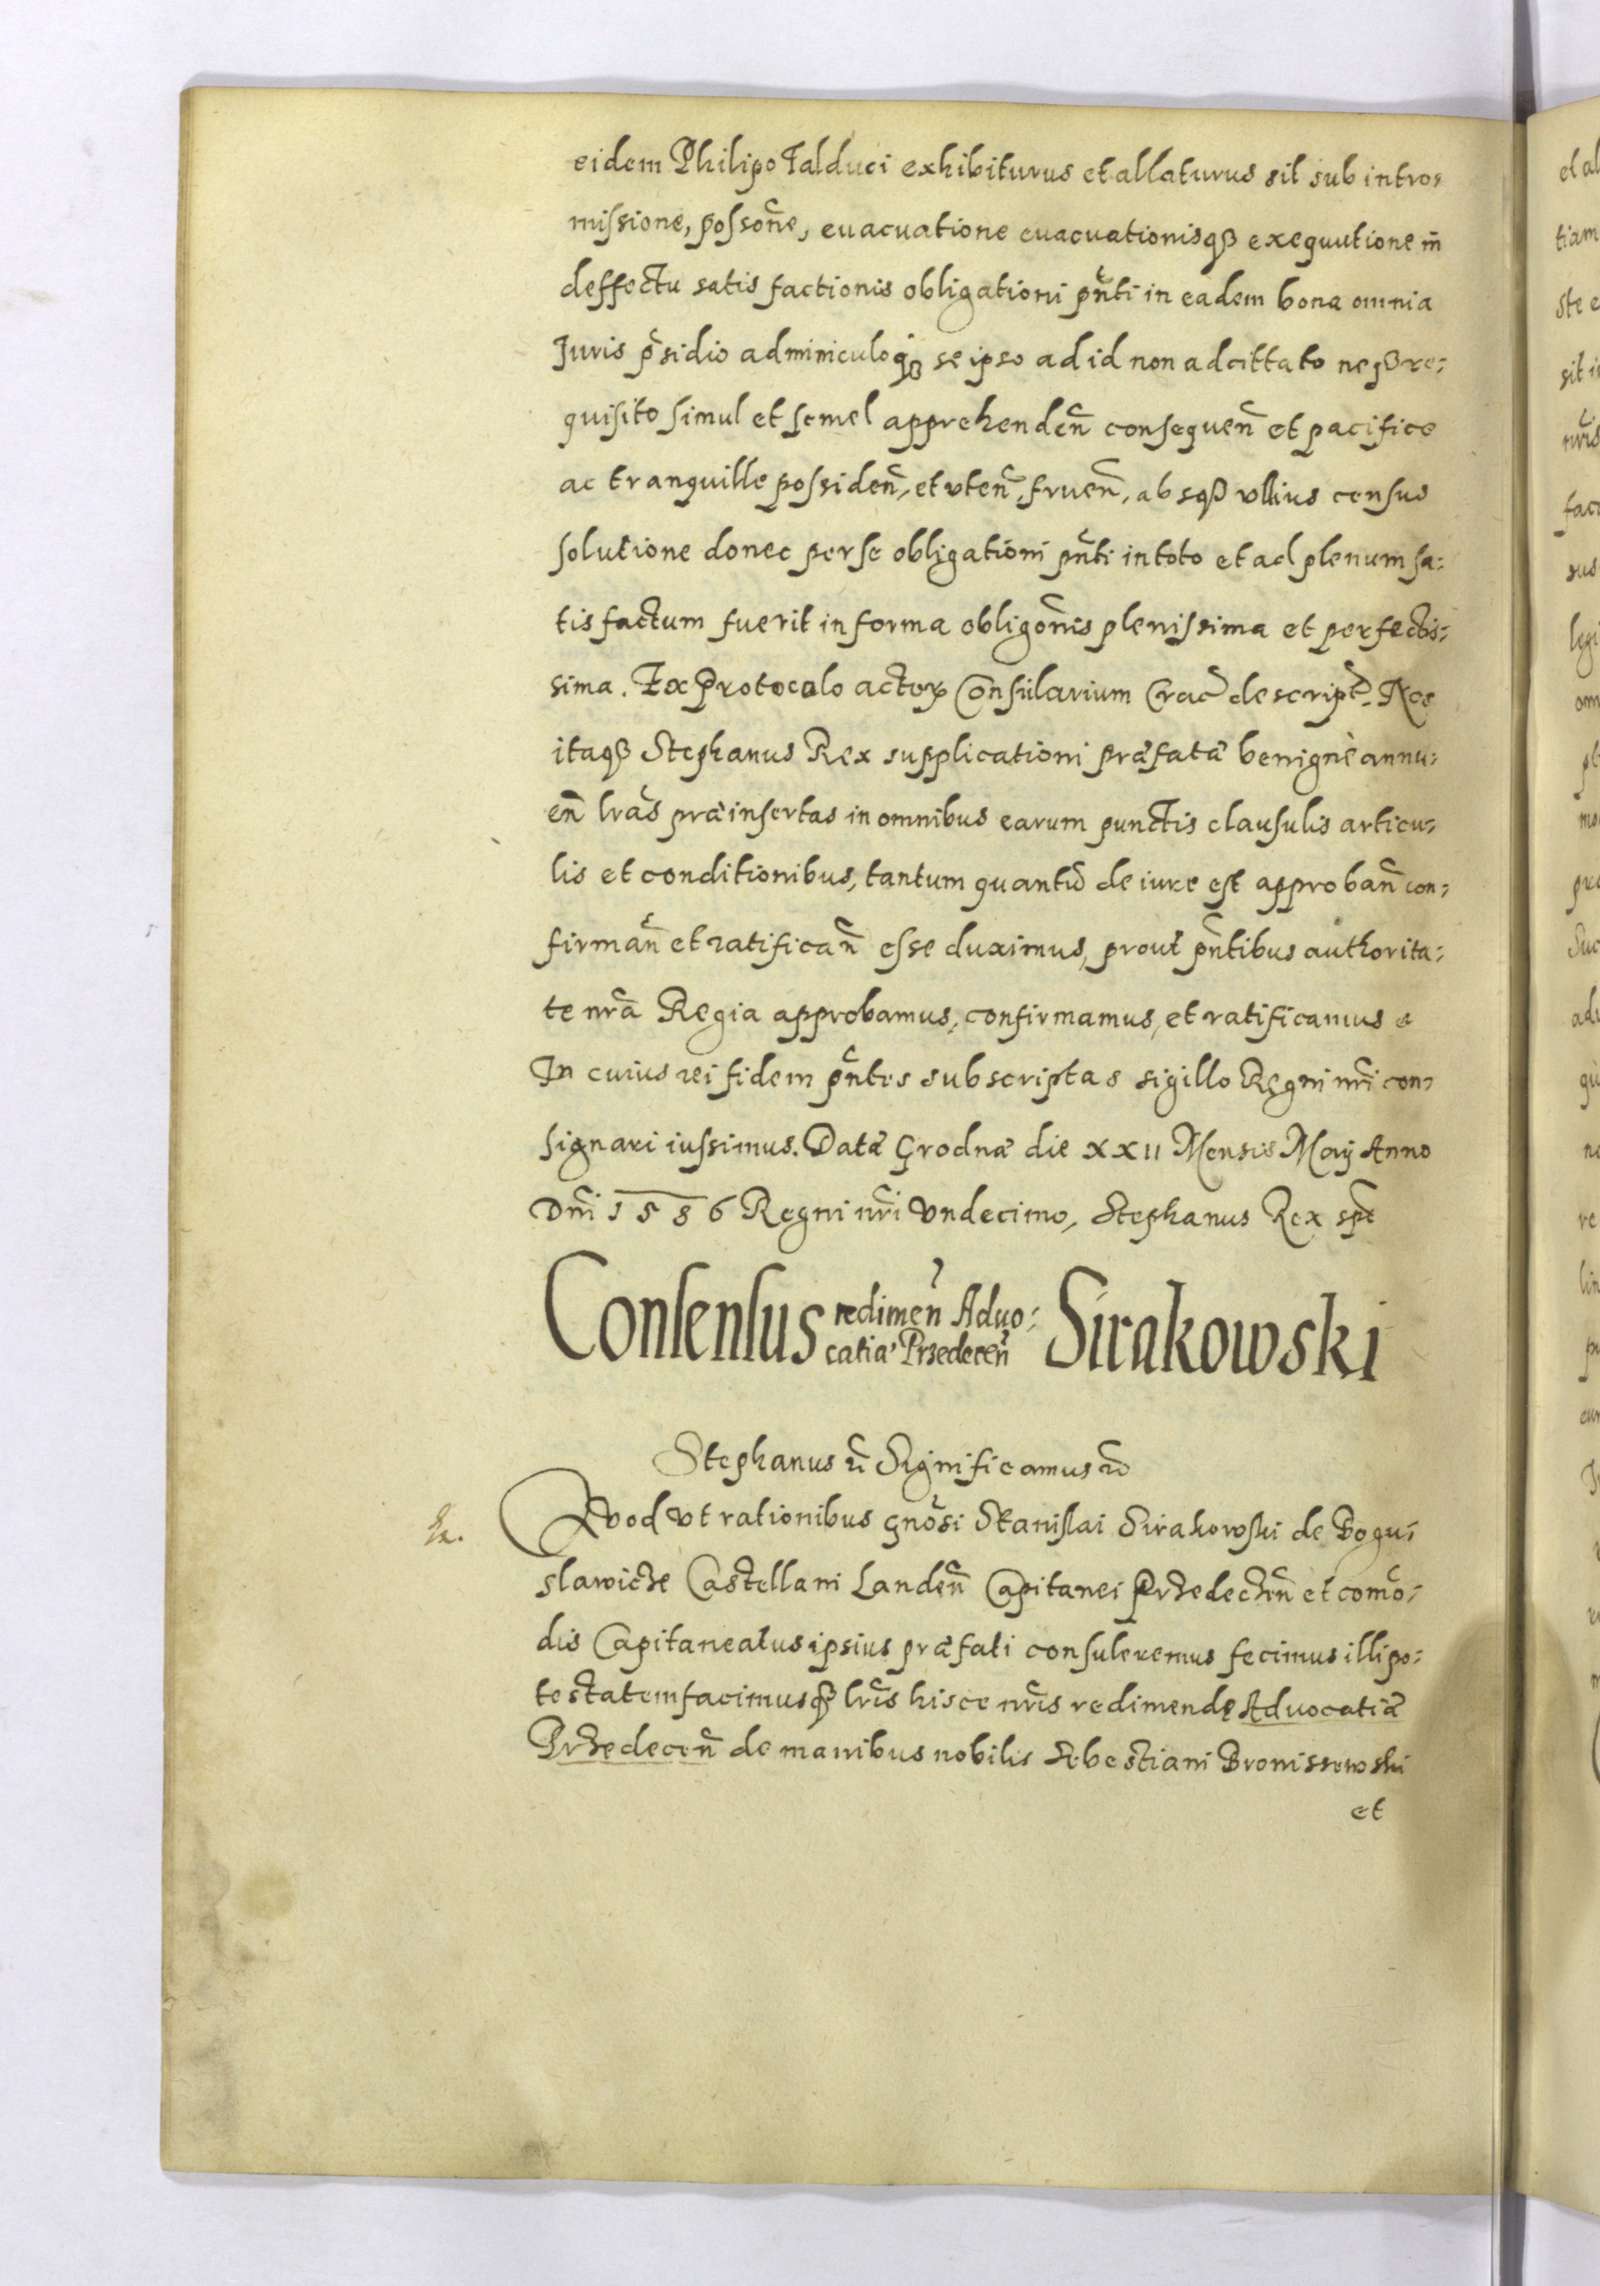 eidem Philipo Talduci exhibiturus et allaturus sit sub intro-
missione, possoñe, euacuatione euacuationisqȝ exequutione in
deffectu satis factionis obligationi pñti in eadem bona omnia
Iuris pȓsidio adminiculoqȝ se ipso ad id non adcittato neqȝ re-
quisito simul et semel apprehendeñ consequeñ et pacifice
ac tranquille possideñ, et vteñ, frueñ, absqȝ vllius census
solutione donec per se obligationi pñti in toto et ad plenum sa-
tisfactum fuerit in forma obligoñis plenissima et perfectis-
sima. Ex Protocolo actorꝝ Consularium Crac̃ descript̃. Nos
itaqȝ Stephanus Rex supplicationi præfatæ benignè annu-
eñ lr̃as præinsertas in omnibus earum punctis clausulis articu-
lis et conditionibus, tantum quantũ de iure est approbañ con-
firmañ et ratificañ esse duximus, prout pñtibus authorita-
te nr̃a Regia approbamus, confirmamus, et ratificamus
In cuius rei fidem pñtes subscriptas sigillo Regni nr̃i con-
signari iussimus. Datæ Grodnæ die XXII Mensis Maij Anno
Dñi 1586 Regni nr̃i Vndecimo, Stephanus Rex spt̃
Consensus redimeñ Aduo- Sirakowski
catiæ Przedeceñ
Stephanus Significamus
Quod vt rationibus gñosi Stanislai Sirakowski de Bogu-
slawicze Castellani Landeñ Capitanei Przedeczeñ et com̃o-
dis Capitaneatus ipsius præfati consuleremus fecimus illi po-
testatem facimusqȝ lr̃is hisce nr̃is redimendę Aduocatiæ
Przedeceñ de manibus nobilis Sebestiani Bronissewski
et